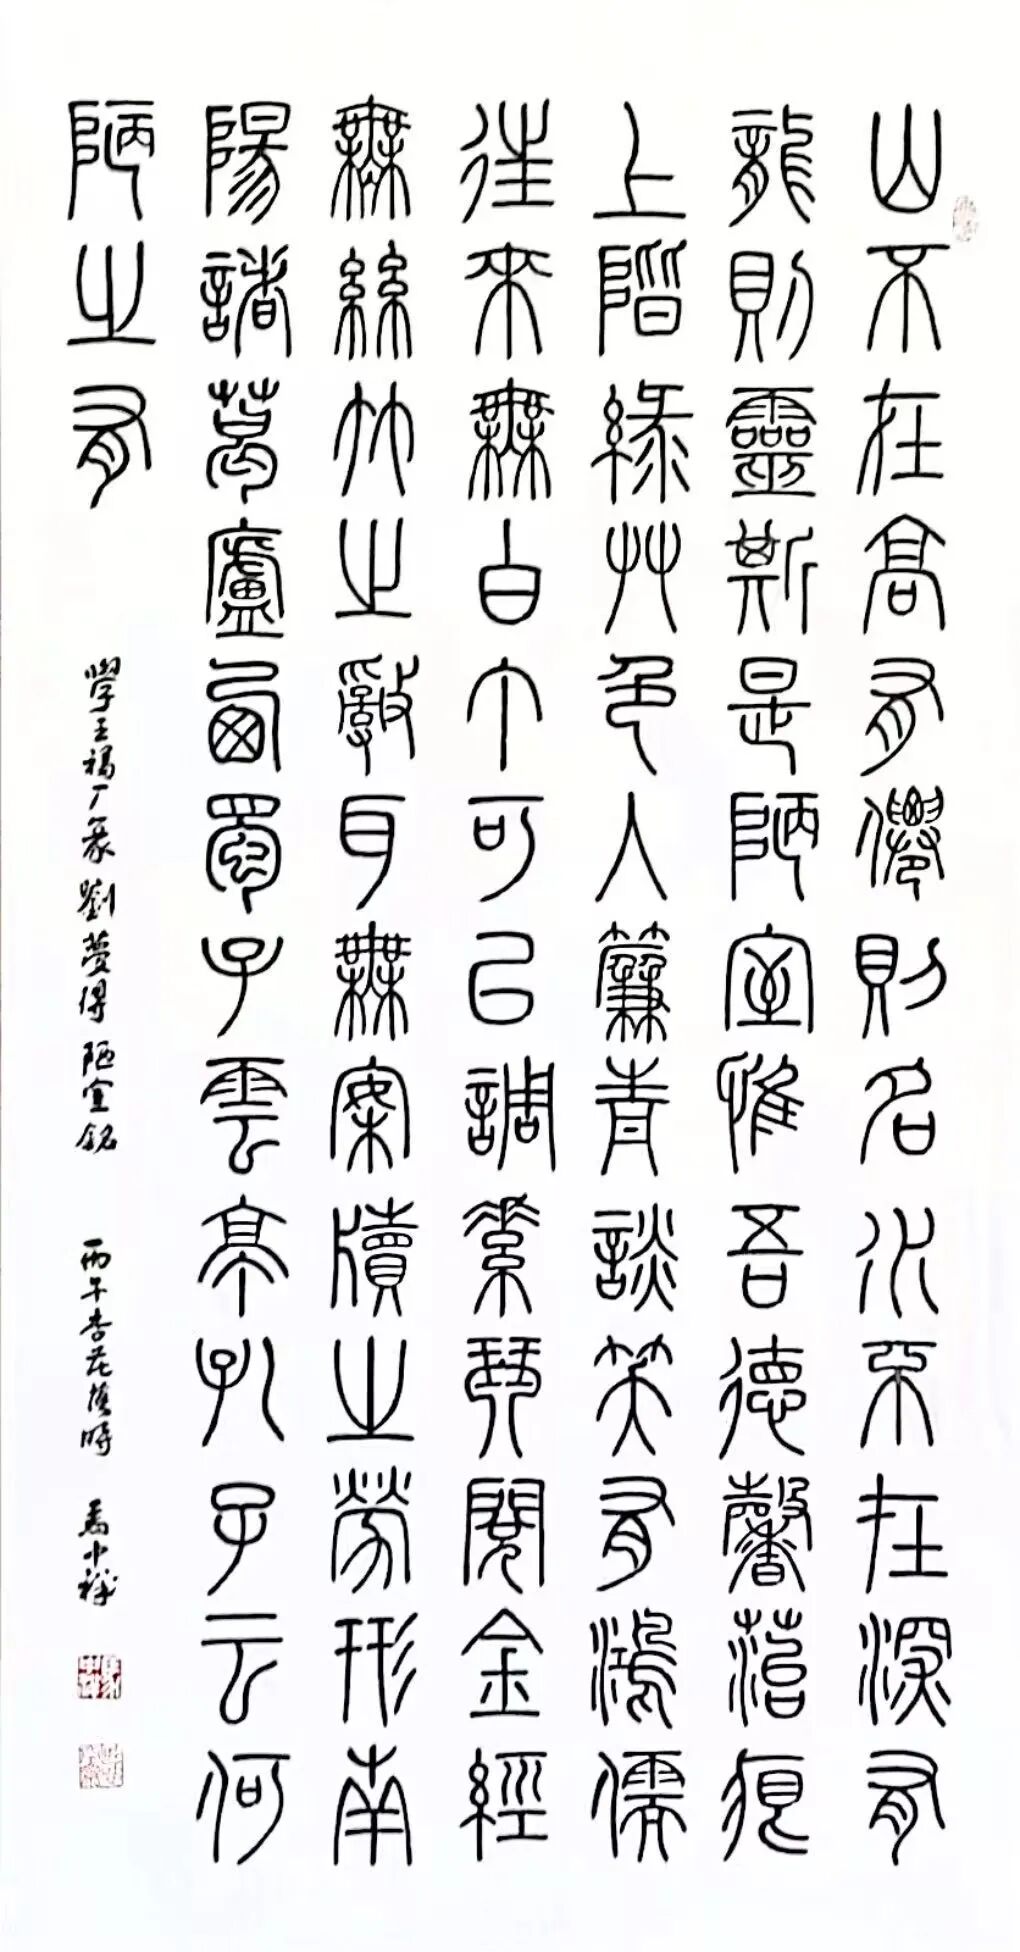 山不在高有僊則名水不在深有
龍則靈斯是陋室惟吾德馨苔痕
上階綠艸色入簾青談笑有鴻儒
往來無白丁可以調素琴閱金經
無絲竹之亂耳無案牘之勞形南
陽諸葛廬西蜀子雲亭孔子云何
陋之有
學王福厂篆劉夢得陋室銘 丙午杏花時